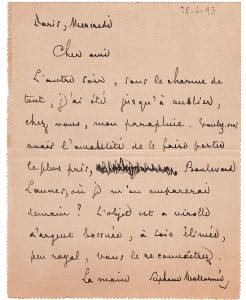 28-6-93
Paris, Mercredi
Cher ami
L'autre soir, sous le charme de
tout, j'ai été jusqu'à oublier,
chez vous, mon parapluie. Voulez-vous
avoir l'amabilité de le faire porter
le plus près, Boulevard
Lannes, où je m'en emparerai
demain ? L'objet est à virolle
d'argent bossuée, à soie élimée,
peu royal, vous le reconnaîtrez.
La main Stéphane Mallarmé